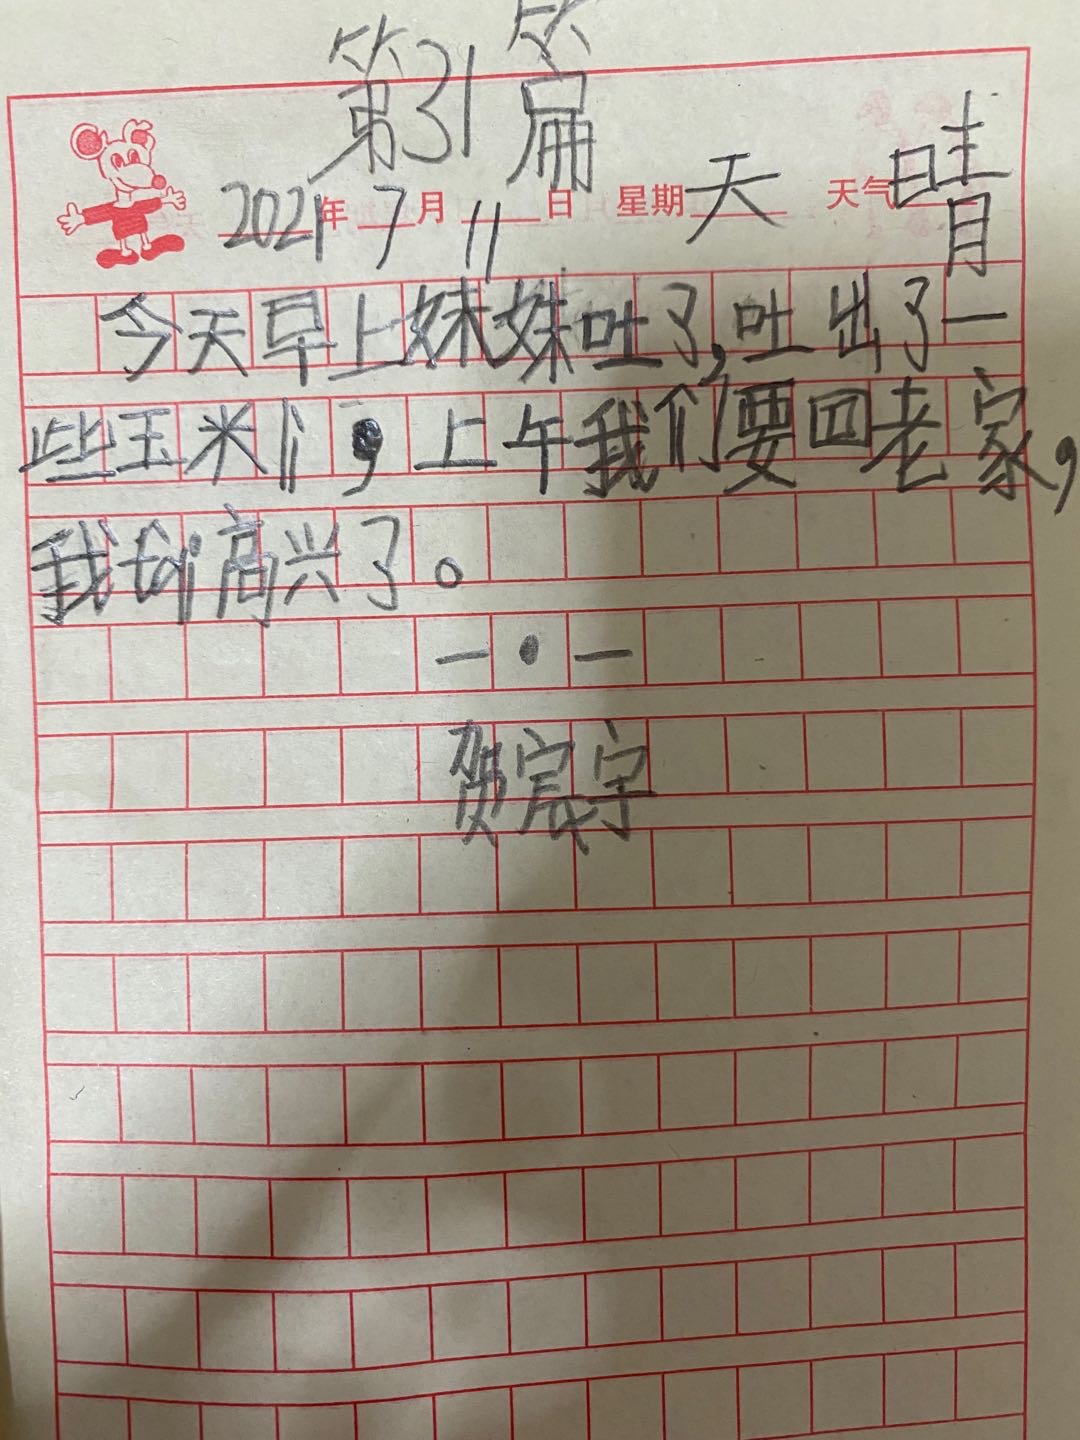 第31篇
2021年7月11日 星期天 天气晴
今天早上妹妹吐了,吐出了一
些玉米li,上午我们要回老家,
我tai高兴了。
一·一
贺宸宇